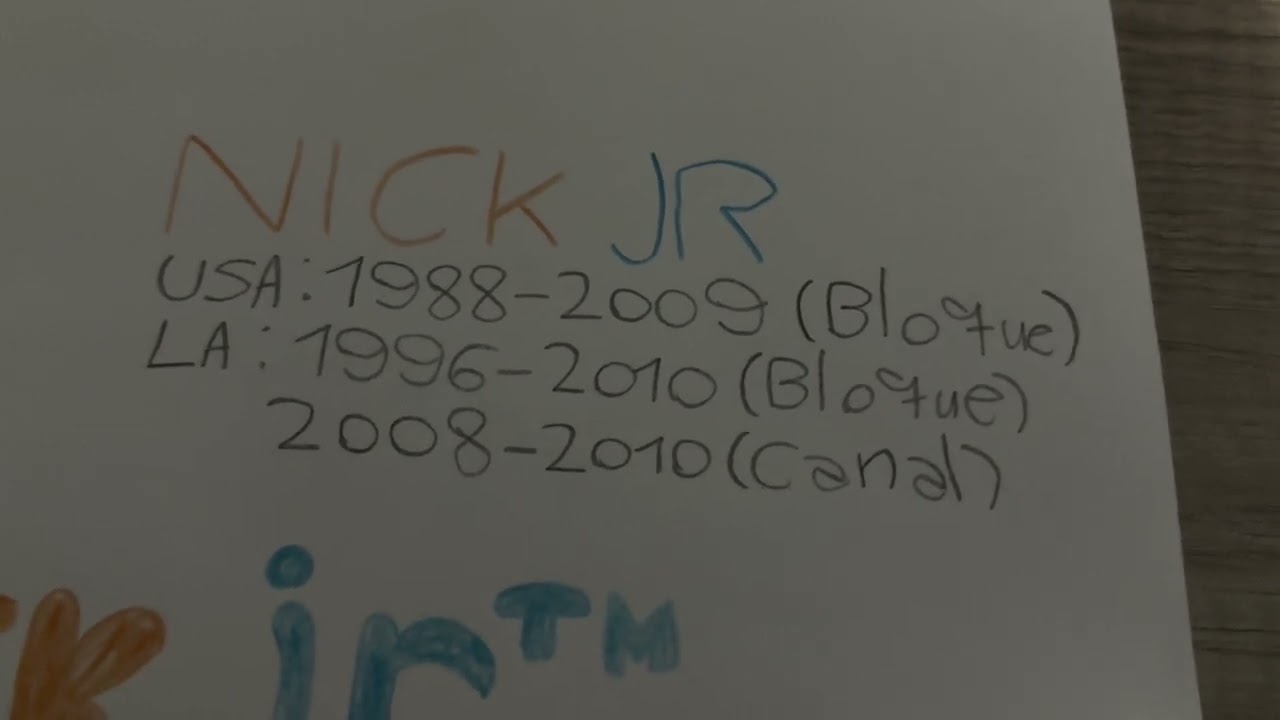 NICK JR
USA: 1988-2009 (Bloque)
LA: 1996-2010 (Bloque)
2008-2010 (Canal)
k jr™